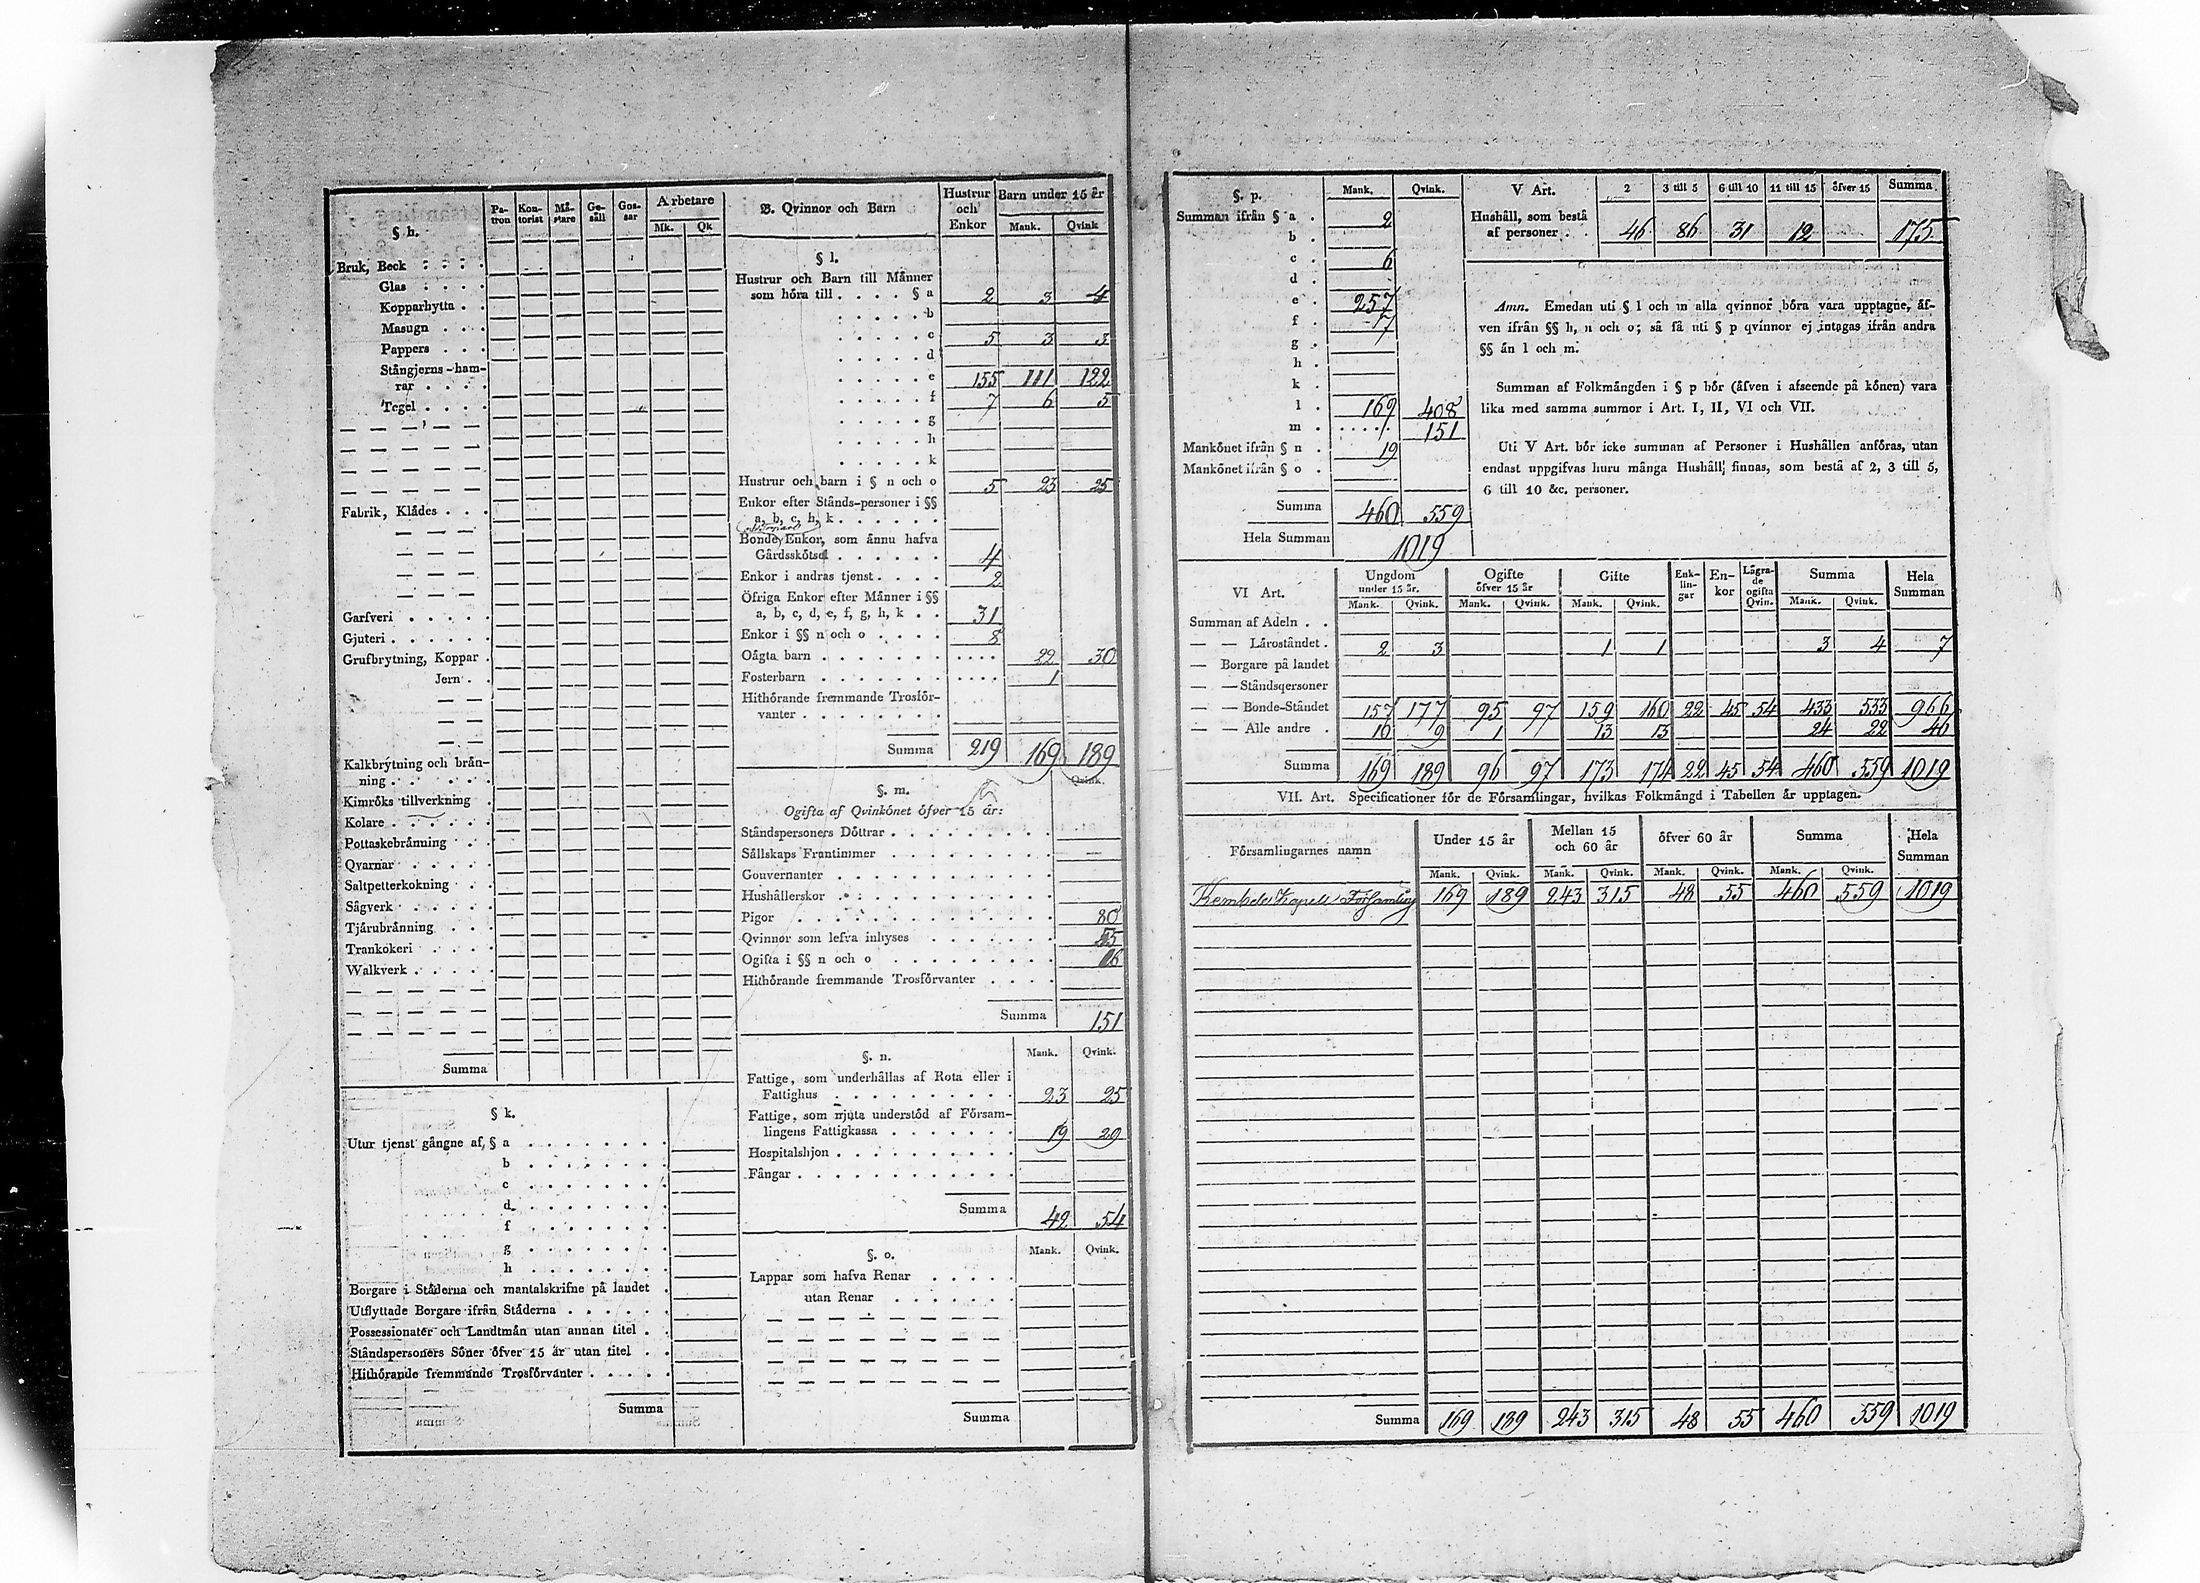 § h.
Pa-tron Kon-torist Må-stare Ge-såll Gos-sar Arbetare
Mk. Qk
Bruk, Beck . . . .
Glas . . . .
Kopparhytta . .
Masugn . . .
Pappers . . .
Stångjerns-ham-
rar . . . .
Tegel . . . .
Fabrik, Klådes . . .
Garfveri . . . . .
Gjuteri . . . . . .
Grufbrytning, Koppar .
Jern . .
Kalkbrytning och brån-
ning . . . . .
Kimröks tillverkning .
Kolare . . . . . .
Pottaskebrånning . .
Qvarnar . . . . .
Saltpetterkokning . .
Sågverk . . . . .
Tjårubrånning . . .
Trankokeri . . . .
Walkverk . . . . .
Summa
§ k.
Utur tjenst gångne af, § a . . . . . . .
b . . . . . . .
c . . . . . . .
d . . . . . . .
f . . . . . . .
g . . . . . . .
h . . . . . . .
Borgare i Ståderna och mantalskrifne på landet .
Utflyttade Borgare ifrån Ståderna . . . . .
Possessionater och Landtmån utan annan titel . .
Ståndspersoners Söner öfver 15 år utan titel . .
Hithörande fremmande Trosförvanter . . . . .
Summa
B. Qvinnor och Barn Hustrur och Enkor Barn under 15 år
Mank. Qvink
§ l.
Hustrur och Barn till Månner
som höra till . . . . § a 2 3 4
. . . . . b
. . . . . c 5 3 3
. . . . . d
. . . . . e 155 111 122
. . . . . f 7 6 5
. . . . . g
. . . . . h
. . . . . k
Hustrur och barn i § n och o 5 23 25
Enkor efter Stånds-personer i §§
a, b, c, h, k . . . . . .
Bonde Enkor, som ånnu hafva
Gårdsskötsel . . . . . . 4
Enkor i andras tjenst . . . . 2
Öfriga Enkor efter Månner i §§
a, b, c, d, e, f, g, h, k . . 31
Enkor i §§ n och o . . . . 8
Oågta barn . . . . . . . . . . . . 22 30
Fosterbarn . . . . . . . . . . . . 1
Hithörande fremmande Trosför-
vanter . . . . . . . .
Summa 219 169 189
§. m. Qvink.
Ogifta af Qvinkönet öfver 15 år:
Ståndspersoners Döttrar . . . . . . . . .
Sållskaps Fruntimmer . . . . . . . . . —
Gouvernanter . . . . . . . . . . . .
Hushållerskor . . . . . . . . . . .
Pigor . . . . . . . . . . . . . 80
Qvinnor som lefva inhyses . . . . . . . 55
Ogifta i §§ n och o . . . . . . . . . 16
Hithörande fremmande Trosförvanter . . . .
Summa 151
§. n. Mank. Qvink.
Fattige, som underhållas af Rota eller i
Fattighus . . . . . . . . . . 23 25
Fattige, som njuta understöd af Församl-
lingens Fattigkassa . . . . . . . 19 29
Hospitalshjon . . . . . . . . . .
Fångar . . . . . . . . . . . .
Summa 42 54
§. o. Mank. Qvink.
Lappar som hafva Renar . . . . .
utan Renar . . . . . . .
Summa
§. p. Mank. Qvink.
Summan ifrån § a . 2
b .
c . 6
d .
e . 257
f . 7
g .
h .
k .
l . 169 408
m . . . . . . 151
Mankönet ifrån § n . 19
Mankönet ifrån § o .
Summa 460 559
Hela Summan 1019
V Art. 2 3 till 5 6 till 10 11 till 15 öfver 15 Summa
Hushåll, som bestå
af personer . . 46 86 31 12 175
Anm. Emedan uti § l och m alla qvinnor böra vara upptagne, åf-
ven ifrån §§ h, n och o; så få uti § p qvinnor ej intagas ifrån andra
§§ ån l och m.
Summan af Folkmångden i § p bör (åfven i afseende på könen) vara
lika med samma summor i Art. I, II, VI och VII.
Uti V Art. bör icke summan af Personer i Hushållen anföras, utan
endast uppgifvas huru många Hushåll finnas, som bestå af 2, 3 till 5,
6 till 10 &c. personer.
VI Art. Ungdom under 15 år. Ogifte öfver 15 år Gifte Enk-lin-gar En-kor Lågra-de ogifta Qvin. Summa Hela Summan
Mank. Qvink. Mank. Qvink. Mank. Qvink. Mank. Qvink.
Summan af Adeln . .
— — Låroståndet . 2 3 1 1 3 4 7
— Borgare på landet
— — Ståndsqersoner
— — Bonde-Ståndet 157 177 95 97 159 160 22 45 54 433 533 966
— — Alle andre . 10 9 1 13 13 24 22 46
Summa 169 189 96 97 173 174 22 45 54 460 559 1019
VII. Art. Specificationer för de Församlingar, hvilkas Folkmångd i Tabellen år upptagen.
Församlingarnes namn Under 15 år Mellan 15 och 60 år öfver 60 år Summa Hela Summan
Mank. Qvink. Mank. Qvink. Mank. Qvink. Mank. Qvink.
Kapell Församling 169 189 243 315 48 55 460 559 1019
Summa 169 189 243 315 48 55 460 559 1019